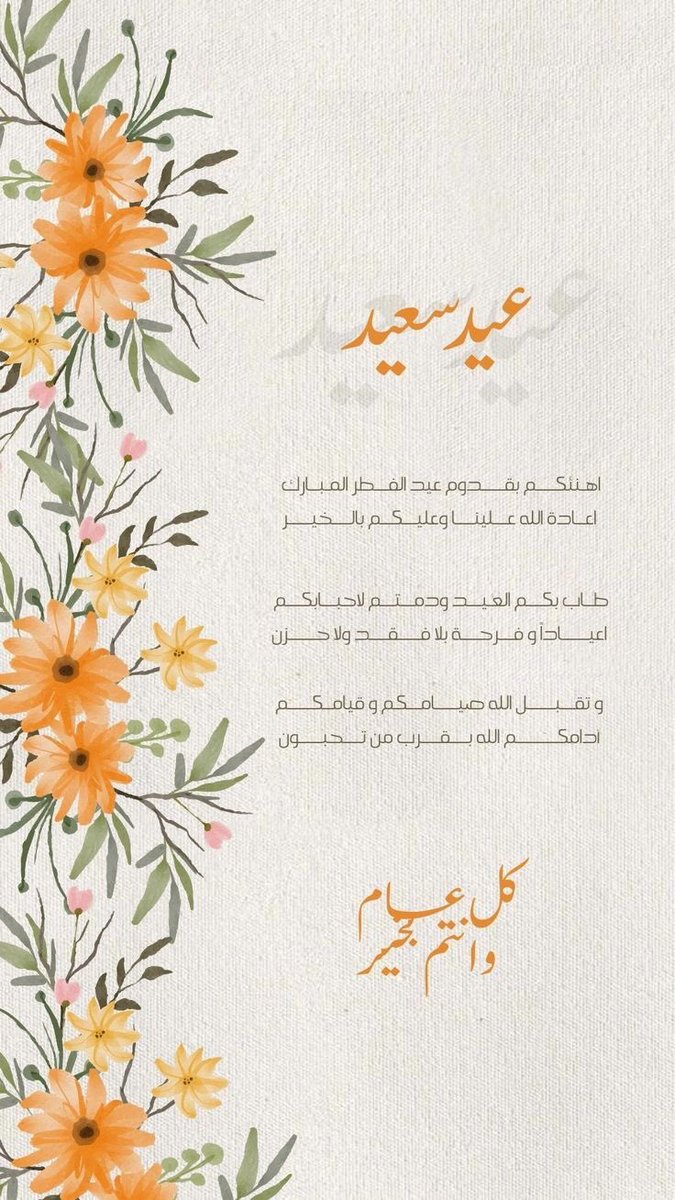 عيد سعيد
اهنئكم بقدوم عيد الفطر المبارك
اعادة الله علينا وعليكم بالخير
طاب بكم العيد ودمتم لاحبابكم
اعياداً و فرحة بلا فقد ولا حزن
و تقبل الله صيامكم و قيامكم
أدامكم الله بقرب من تحبون
كل عام
وانتم بخير